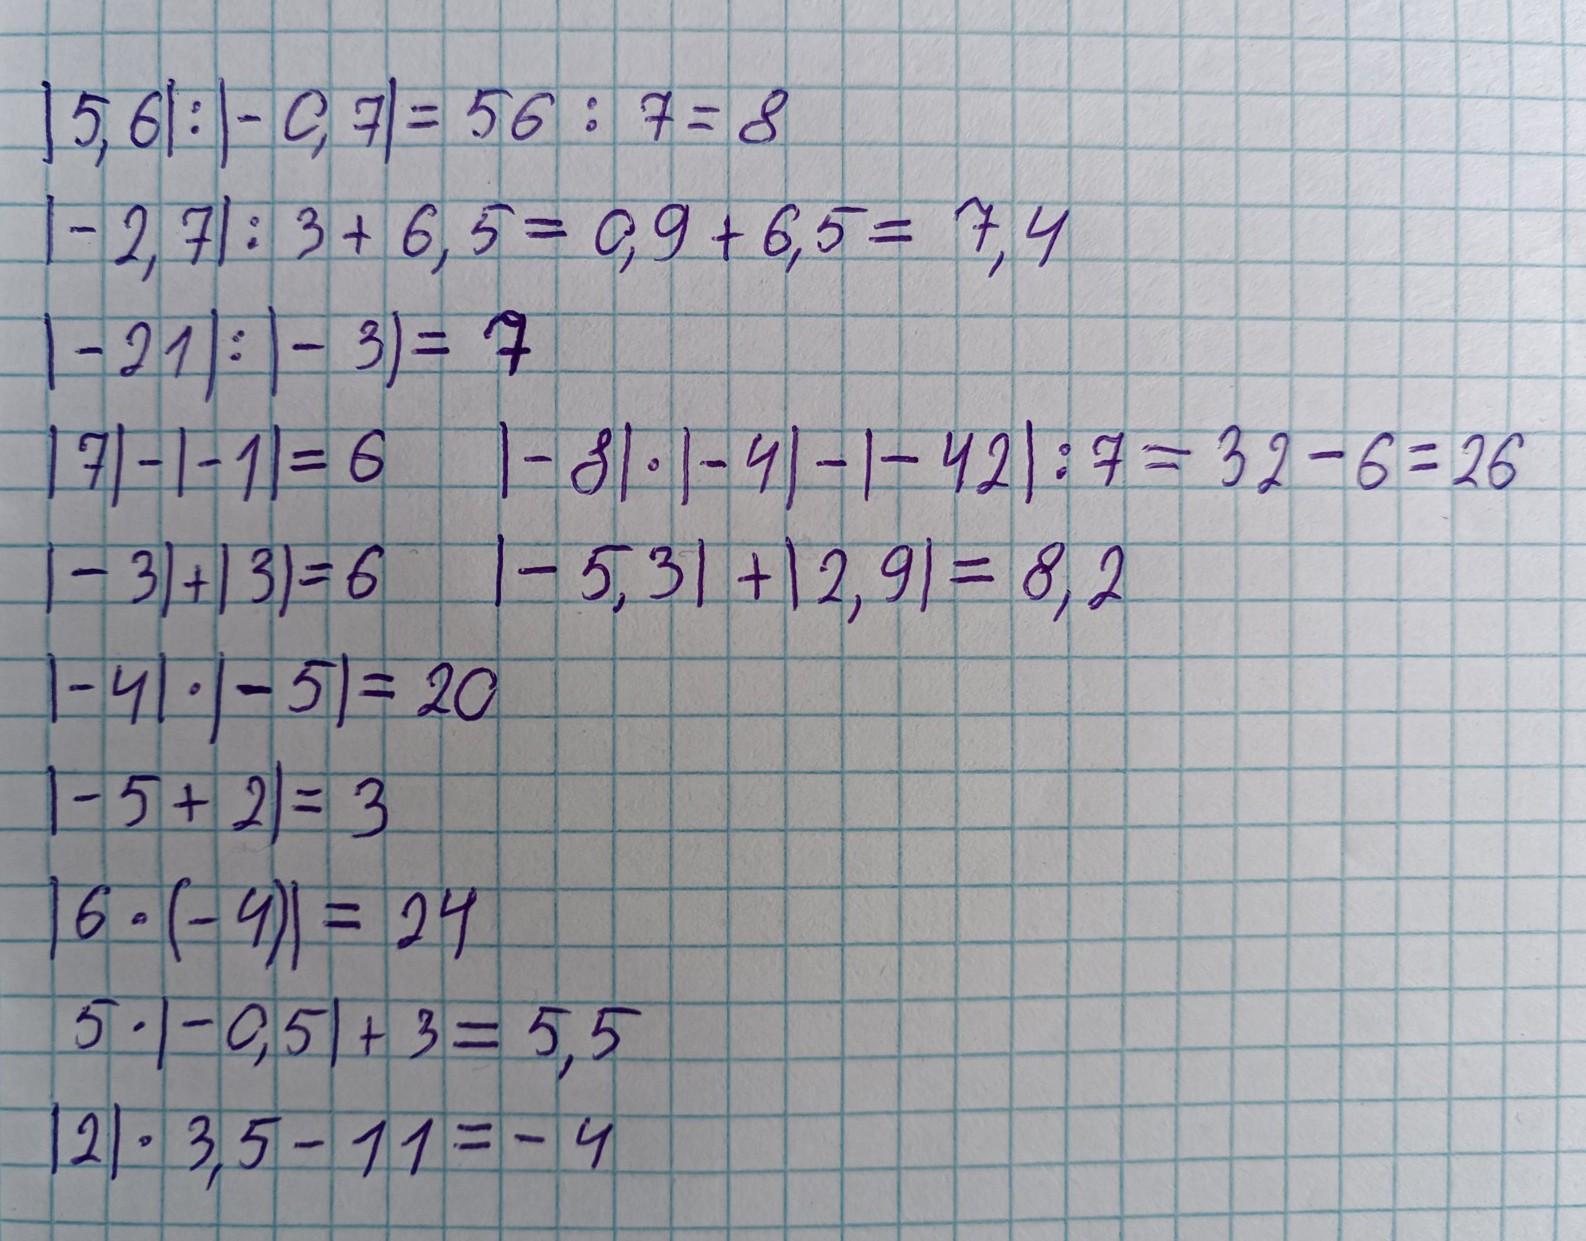 |5,6|:|-0,7|=56:7=8
|-2,7|:3+6,5=0,9+6,5=7,4
|-21|:|-3|=7
|7|-|-1|=6 |-8|·|-4|-|-42|:7=32-6=26
|-3|+|3|=6 |-5,3|+|2,9|=8,2
|-4|·|-5|=20
|-5+2|=3
|6·(-4)|=24
5·|-0,5|+3=5,5
|2|·3,5-11=-4